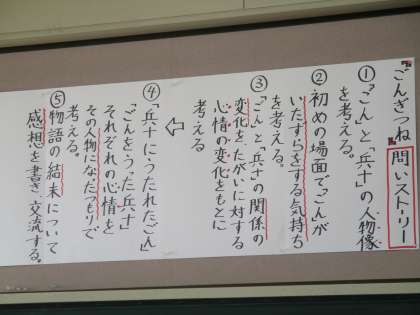 「ごんぎつね」 問いストーリー
①「ごん」と「兵十」の人物像
を考える。
②初めの場面で「ごん」が
いたずらをする気持ち
を考える。
③「ごん」と「兵十」の関係の
変化を、たがいに対する
心情の変化をもとに
考える
⇦
④「兵十にうたれたごん」
「ごんをうった兵十」
それぞれの心情を
その人物になったつもりで
考える。
⑤物語の結末について
感想を書き交流する。